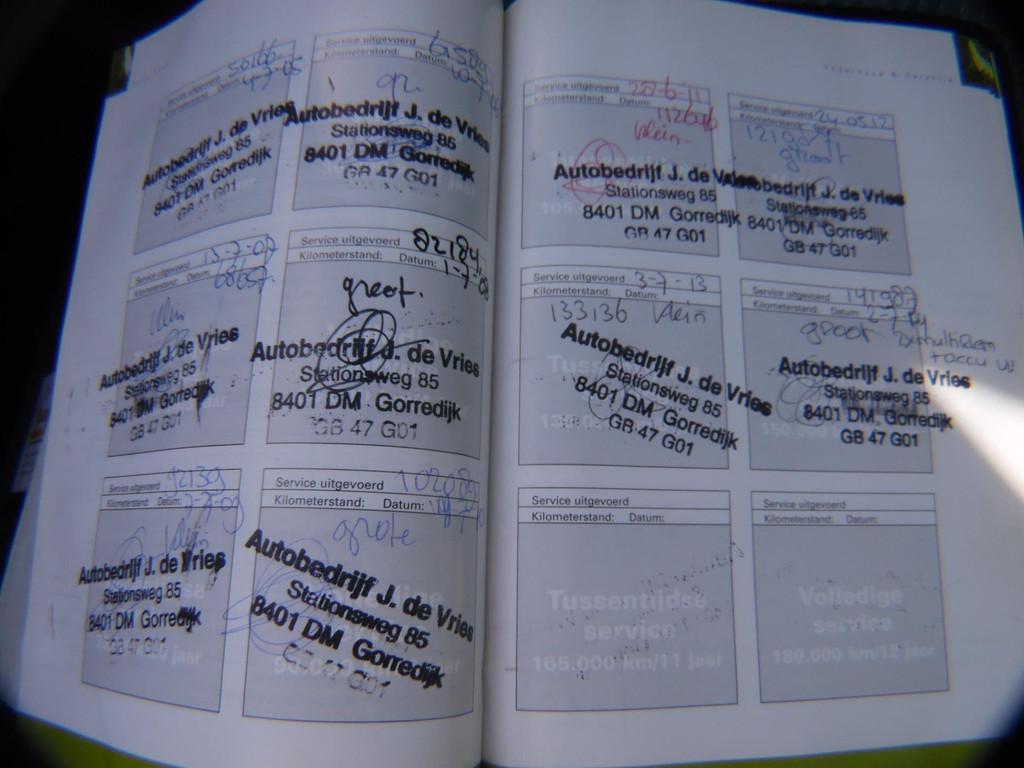 Service uitgevoerd
Kilometerstand: Datum:
Autobedrijf J. de Vries
Stationsweg 85
8401 DM Gorredijk
GB 47 G01
Service uitgevoerd
Kilometerstand: Datum:
gr.
Autobedrijf J. de Vries
Stationsweg 85
8401 DM Gorredijk
GB 47 G01
Service uitgevoerd
Kilometerstand: Datum:
68657
klein
Autobedrijf J. de Vries
Stationsweg 85
8401 DM Gorredijk
GB 47 G01
Service uitgevoerd 82184
Kilometerstand: Datum: 1-7-08
groot.
Autobedrijf J. de Vries
Stationsweg 85
8401 DM Gorredijk
GB 47 G01
Service uitgevoerd 92139
Kilometerstand: Datum:
klein
Autobedrijf J. de Vries
Stationsweg 85
8401 DM Gorredijk
GB 47 G01
jaar
Service uitgevoerd 102089
Kilometerstand: Datum:
grote
Autobedrijf J. de Vries
Stationsweg 85
8401 DM Gorredijk
G01
Service uitgevoerd
Kilometerstand: Datum:
klein
Autobedrijf J. de Vries
Stationsweg 85
8401 DM Gorredijk
GB 47 G01
Service uitgevoerd 24-05-12
Kilometerstand:
groot
Autobedrijf J. de Vries
Stationsweg 85
8401 DM Gorredijk
GB 47 G01
Service uitgevoerd 3-7-13
Kilometerstand: Datum:
133136 klein
Autobedrijf J. de Vries
Stationsweg 85
8401 DM Gorredijk
GB 47 G01
Service uitgevoerd 141987
Kilometerstand: Datum:
groot
+ accu
Autobedrijf J. de Vries
Stationsweg 85
8401 DM Gorredijk
GB 47 G01
Service uitgevoerd
Kilometerstand: Datum:
Tussentijdse
service
165.000 km/11 jaar
Service uitgevoerd
Kilometerstand: Datum:
Volledige
service
180.000 km/12 jaar